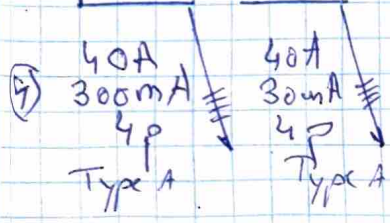 ④
40A
300mA
4p
Type A
40A
30mA
4p
Type A